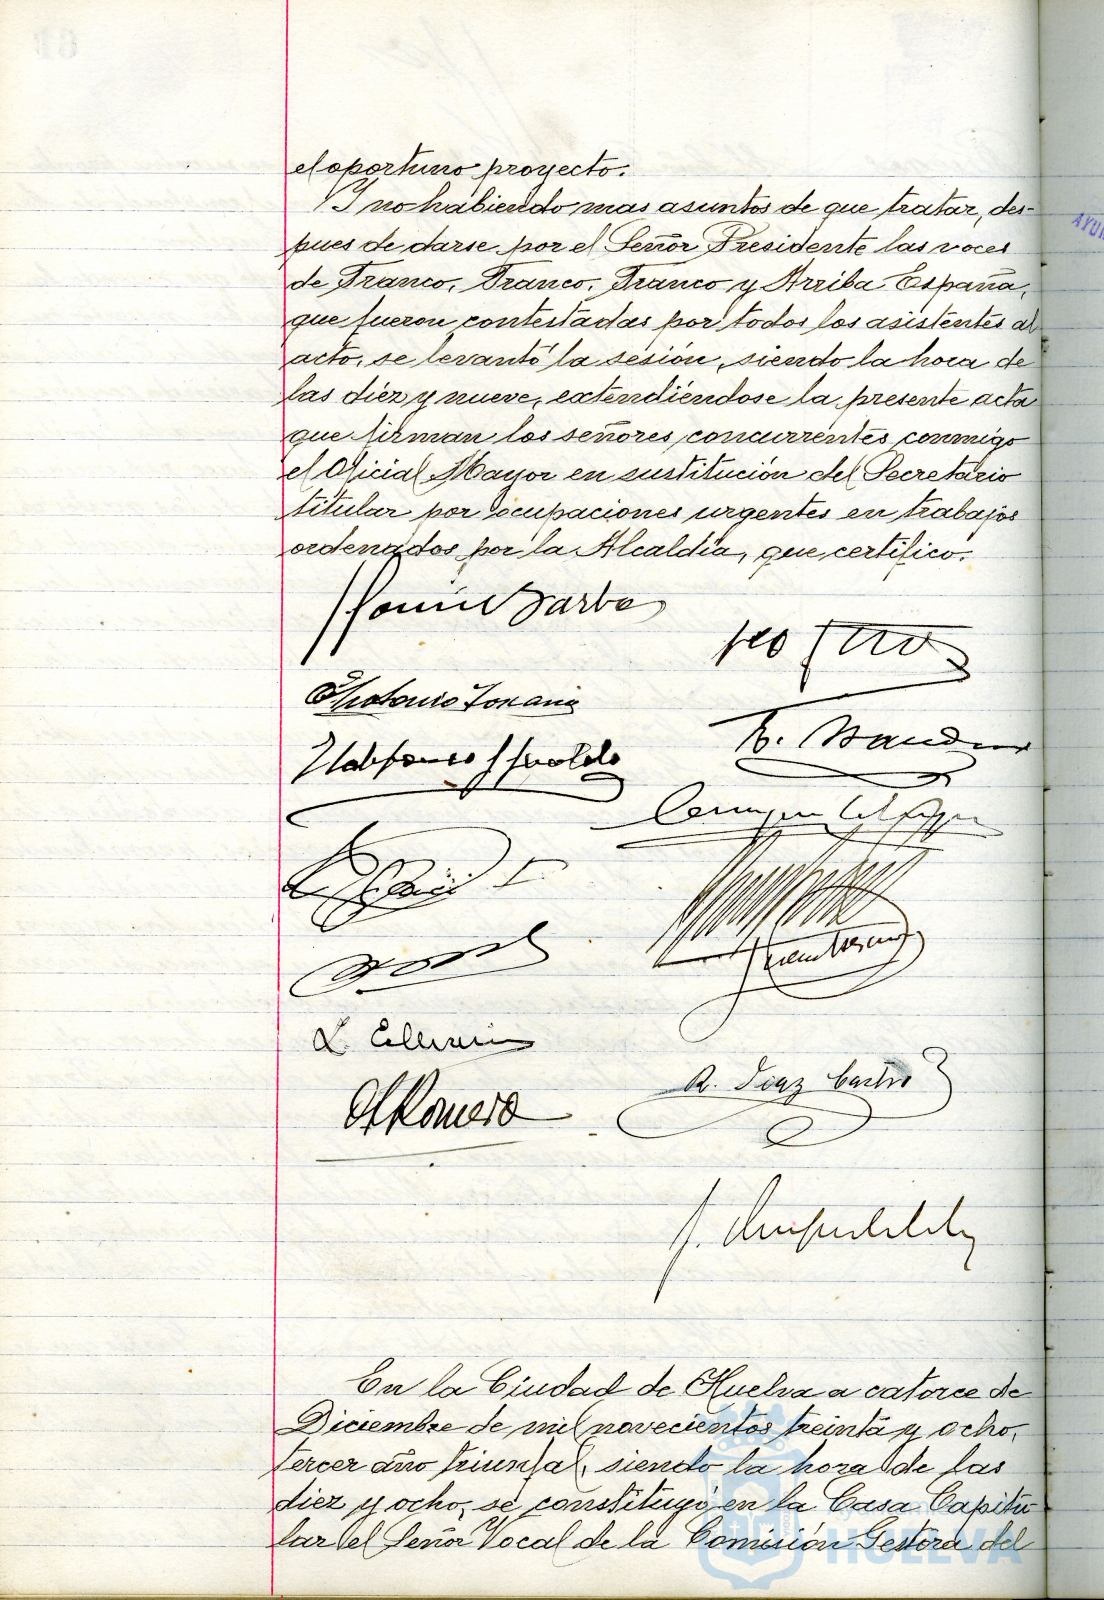 el oportuno proyecto.
Y no habiendo mas asuntos de que tratar, des-
pues de darse por el Señor Presidente las voces
de Franco, Franco, Franco y Arriba España,
que fueron contestadas por todos los asistentes al
acto, se levantó la sesión, siendo la hora de
las diéz y nueve, extendiéndose la presente acta
que firman los señores concurrentes conmigo
el Oficial Mayor en sustitución del Secretario
titular por ocupaciones urgentes en trabajos
ordenados por la Alcaldía, que certifico.
Barba
Ildefonso
R. Diaz Castro
Romero
En la Ciudad de Huelva a catorce de
Diciembre de mil novecientos treinta y ocho,
tercer año triunfal, siendo la hora de las
diez y ocho, se constituyó en la Casa Capitu
lar el Señor Vocal de la Comisión Gestora del
HUELVA